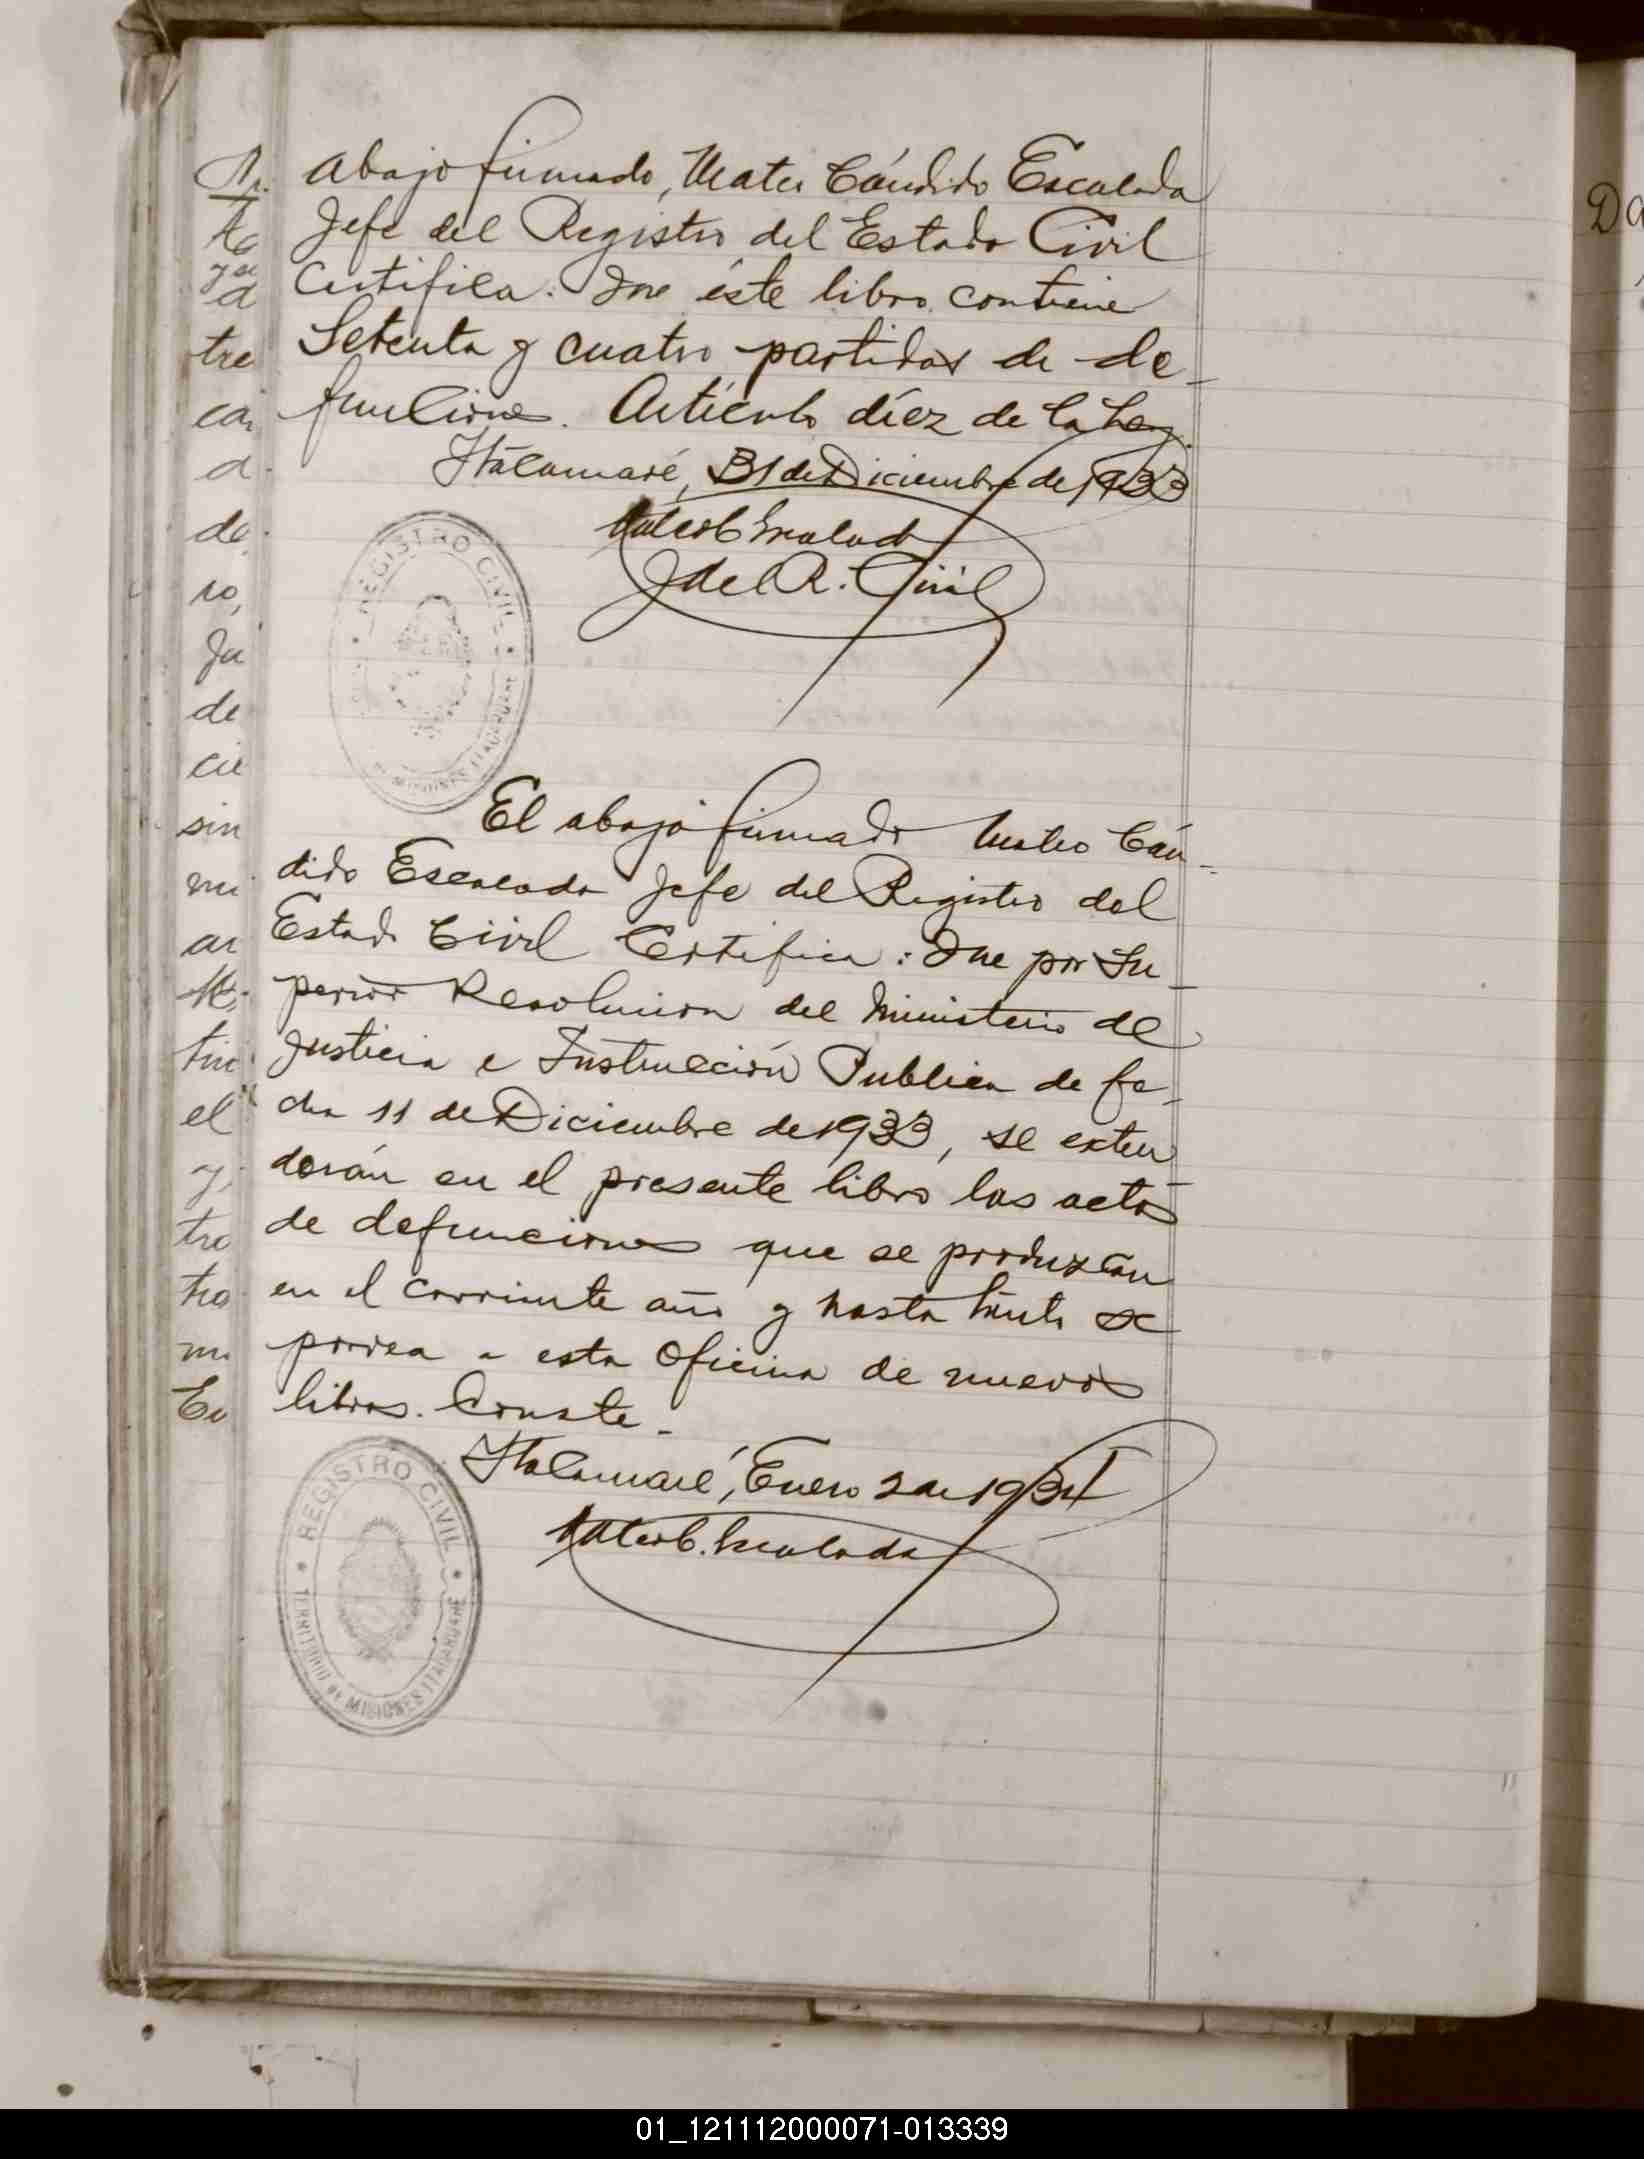 Abajo firmado, Mateo Cándido Escalada
Jefe del Registro del Estado Civil
Certifica: Que éste libro contiene
Setenta y cuatro partidas de de-
funciones. Artículo díez de la Ley.
Itacaruaré, 31 de Diciembre de 1933
Mateo C Escalada
J del R. Civil
REGISTRO CIVIL
DE MISIONES ITACARUARE
El abajo firmado Mateo Cán-
dido Escalada Jefe del Registro del
Estado Civil Certifica: Que por Su-
perior Resolucion del Ministerio de
Justicia e Instrucción Publica de fe-
cha 11 de Diciembre de 1933, se exten
derán en el presente libro las actas
de defunciones que se produzcan
en el corriente año y hasta tánto se
provea a esta Oficina de nuevos
libros. Conste.
Itacaruaré, Enero 2 de 1934
Mateo C. Escalada
REGISTRO CIVIL
TERRITORIO DE MISIONES ITACARUARE
tre
d
de
de
cie
sin
mi
ar
el
y
tro
01_121112000071-013339